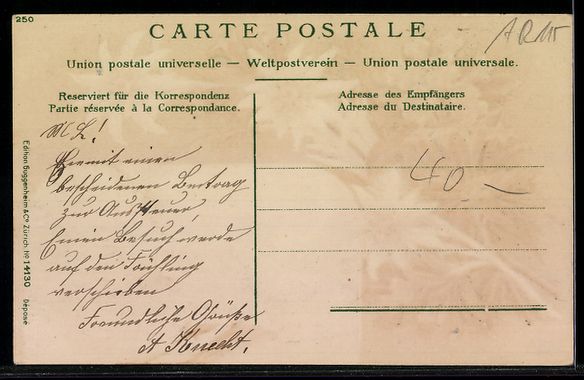 250
CARTE POSTALE
Union postale universelle — Weltpostverein — Union postale universale.
Reserviert für die Korrespondenz
Partie réservée à la Correspondance.
Adresse des Empfängers
Adresse du Destinataire.
M L!
Hiermit einen
bescheidenen Beitrag
zur Aussteuer,
Einen Besuch werde
auf den Frühling
verschieben
Freundliche Grüße
A Knecht.
40 —
Edition Guggenheim & Co Zürich No 14130
déposé